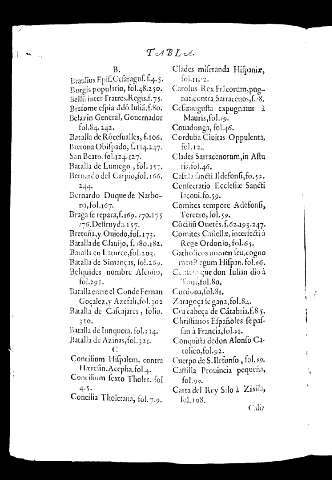 TABLA.
B.
Braulius Epis. Cesaragust. f.4.5.
Burgis populatio, fol.48.250.
Bella inter Fratres Reges.f.75.
Bretome espia ddó Iulia, f.80.
Belarin General, Gouernador
fol.84.242.
Batalla de Rócesualles, f.106.
Bretona Obispado, f.114.247.
San Beato. fol.124.127.
Batalla de Lamego, fol.157.
Bernardo del Carpio, fol.166.
244.
Bernardo Duque de Narbona,
fol.167.
Braga se repara, f.169.170.175
176. Destruyda 157.
Bretaña, y Ouiedo, fol.173.
Batalla de Clauijo, f.180.182.
Batalla en Laturce, fol.203.
Batalla de Simancas, fol.269.
Belquides nombre Alcoino,
fol.291.
Batalla entre el Conde Fernan
Goçalez, y Azefali, fol.302
Batalla de Cascajares, folio.
310.
Batalla de Iunquera, fol.314.
Batalla de Azinas, fol.321.
C
Concilium Hispalens. contra
Hæresin. Acepha. fol.4.
Concilium sexto Tholet. fol
4.5.
Concilia Tholetana, fol.7.9.
Clades miseranda Hispaniæ,
fol.11.2.
Carolus Rex Frácorum, pugnat
contra Sarracenos, f.8.
Cesaraugusta expugnatus à
Mauris, fol.15.
Couadonga, fol.46.
Corduba Ciuitas Oppulenta,
fol.12.
Clades Sarracenorum, in Asturia,
fol.46.
Casulla sancti Ildefonsi, fo.52.
Consecratio Ecclesiæ Sancti
Iacoui. fo.59.
Comites tempore Adefonsi,
Tercero, fol.59.
Cócilió Ouetés. f.62.195.247.
Comites Castellæ, interfecti à
Rege Ordonio, fol.63.
Catholicus amorem seu, cognomen
Regum Hispan. fol.66.
que don Iulian dio à
fol.80.
Cordoua, fol.81.
Zaragoça se gana, fol.84.
Cruz cabeça de Cátabria, f.85.
Christianos Españoles se passan
à Francia, fol.91.
Conquista de don Alonso Catolico,
fol.92.
Cuerpo de S. Ilefonso, fol.59.
Castilla Prouincia pequeña,
fol.90.
Carta del Rey Silo à Zixila,
fol.108.